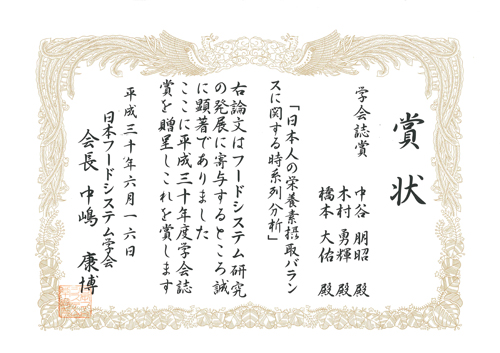 賞状
学会誌賞
中谷 朋昭 殿
木村 勇輝 殿
橋本 大佑 殿
「日本人の栄養素摂取バラン
スに関する時系列分析」
右論文はフードシステム研究
の発展に寄与するところ誠
に顕著でありました
ここに平成三十年度学会誌
賞を贈呈しこれを賞します
平成三十年六月一六日
日本フードシステム学会
会長 中嶋 康博